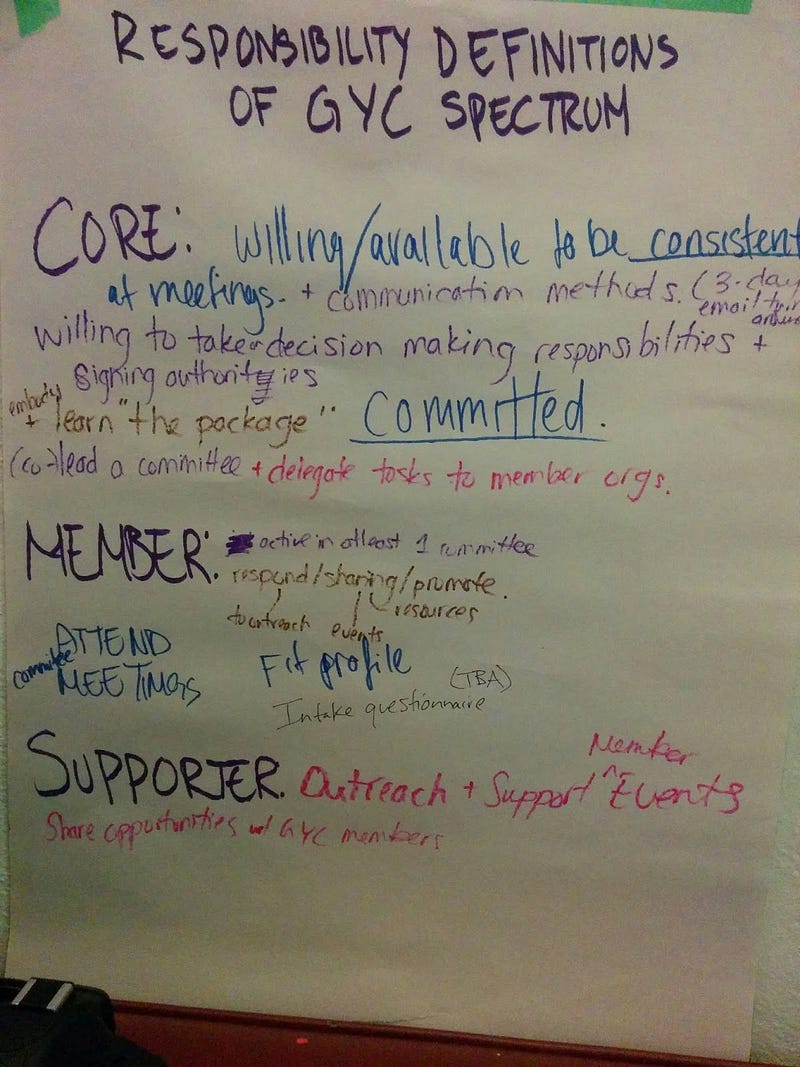 RESPONSIBILITY DEFINITIONS
OF GYC SPECTRUM
CORE: willing/available to be consistent
at meetings. + communication methods. (3-day
email turn
around
willing to take on decision making responsibilities +
Signing authorities
embody
+ learn "the package" Committed.
(co-)lead a committee + delegate tasks to member orgs.
MEMBER: active in atleast 1 committee
respond/sharing/promote.
to outreach events resources
ATTEND
committee MEETINGS
Fit profile
(TBA)
Intake questionnaire
SUPPORTER. Outreach + Support ^ Events
Member
Share opportunities w/ GYC members